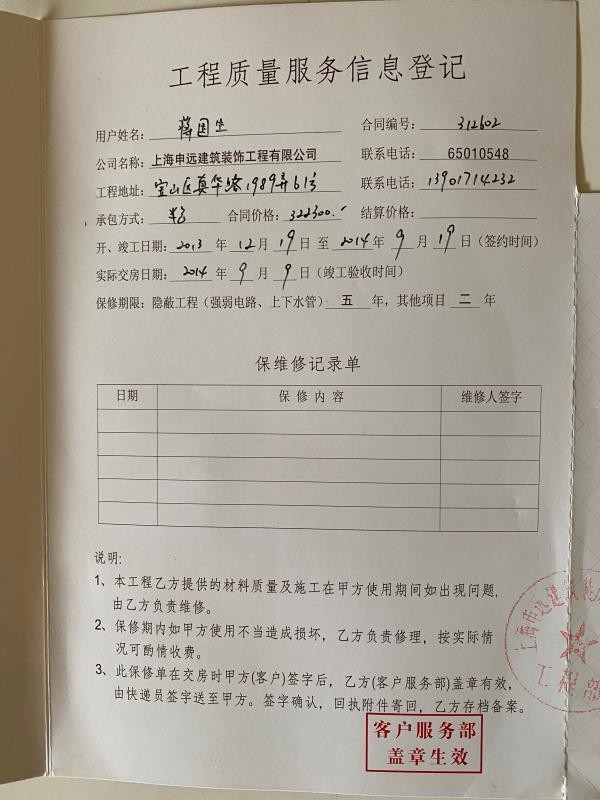 工程质量服务信息登记
用户姓名：蒋国生 合同编号：312602
公司名称：上海申远建筑装饰工程有限公司 联系电话：65010548
工程地址：宝山区真华路1989弄61号 联系电话：13901714232
承包方式：半包 合同价格：322300. 结算价格：
开、竣工日期：2013 年 12 月 19 日 至 2014 年 9 月 19 日（签约时间）
实际交房日期：2014 年 9 月 9 日（竣工验收时间）
保修期限：隐蔽工程（强弱电路、上下水管）五 年，其他项目 二 年
保维修记录单
日期 保修内容 维修人签字
说明：
1、本工程乙方提供的材料质量及施工在甲方使用期间如出现问题，
由乙方负责维修。
2、保修期内如甲方使用不当造成损坏，乙方负责修理，按实际情
况可酌情收费。
3、此保修单在交房时甲方(客户)签字后，乙方(客户服务部)盖章有效，
由快递员签字送至甲方。签字确认，回执附件寄回，乙方存档备案。
上海申远建筑装
工程部
客户服务部
盖章生效